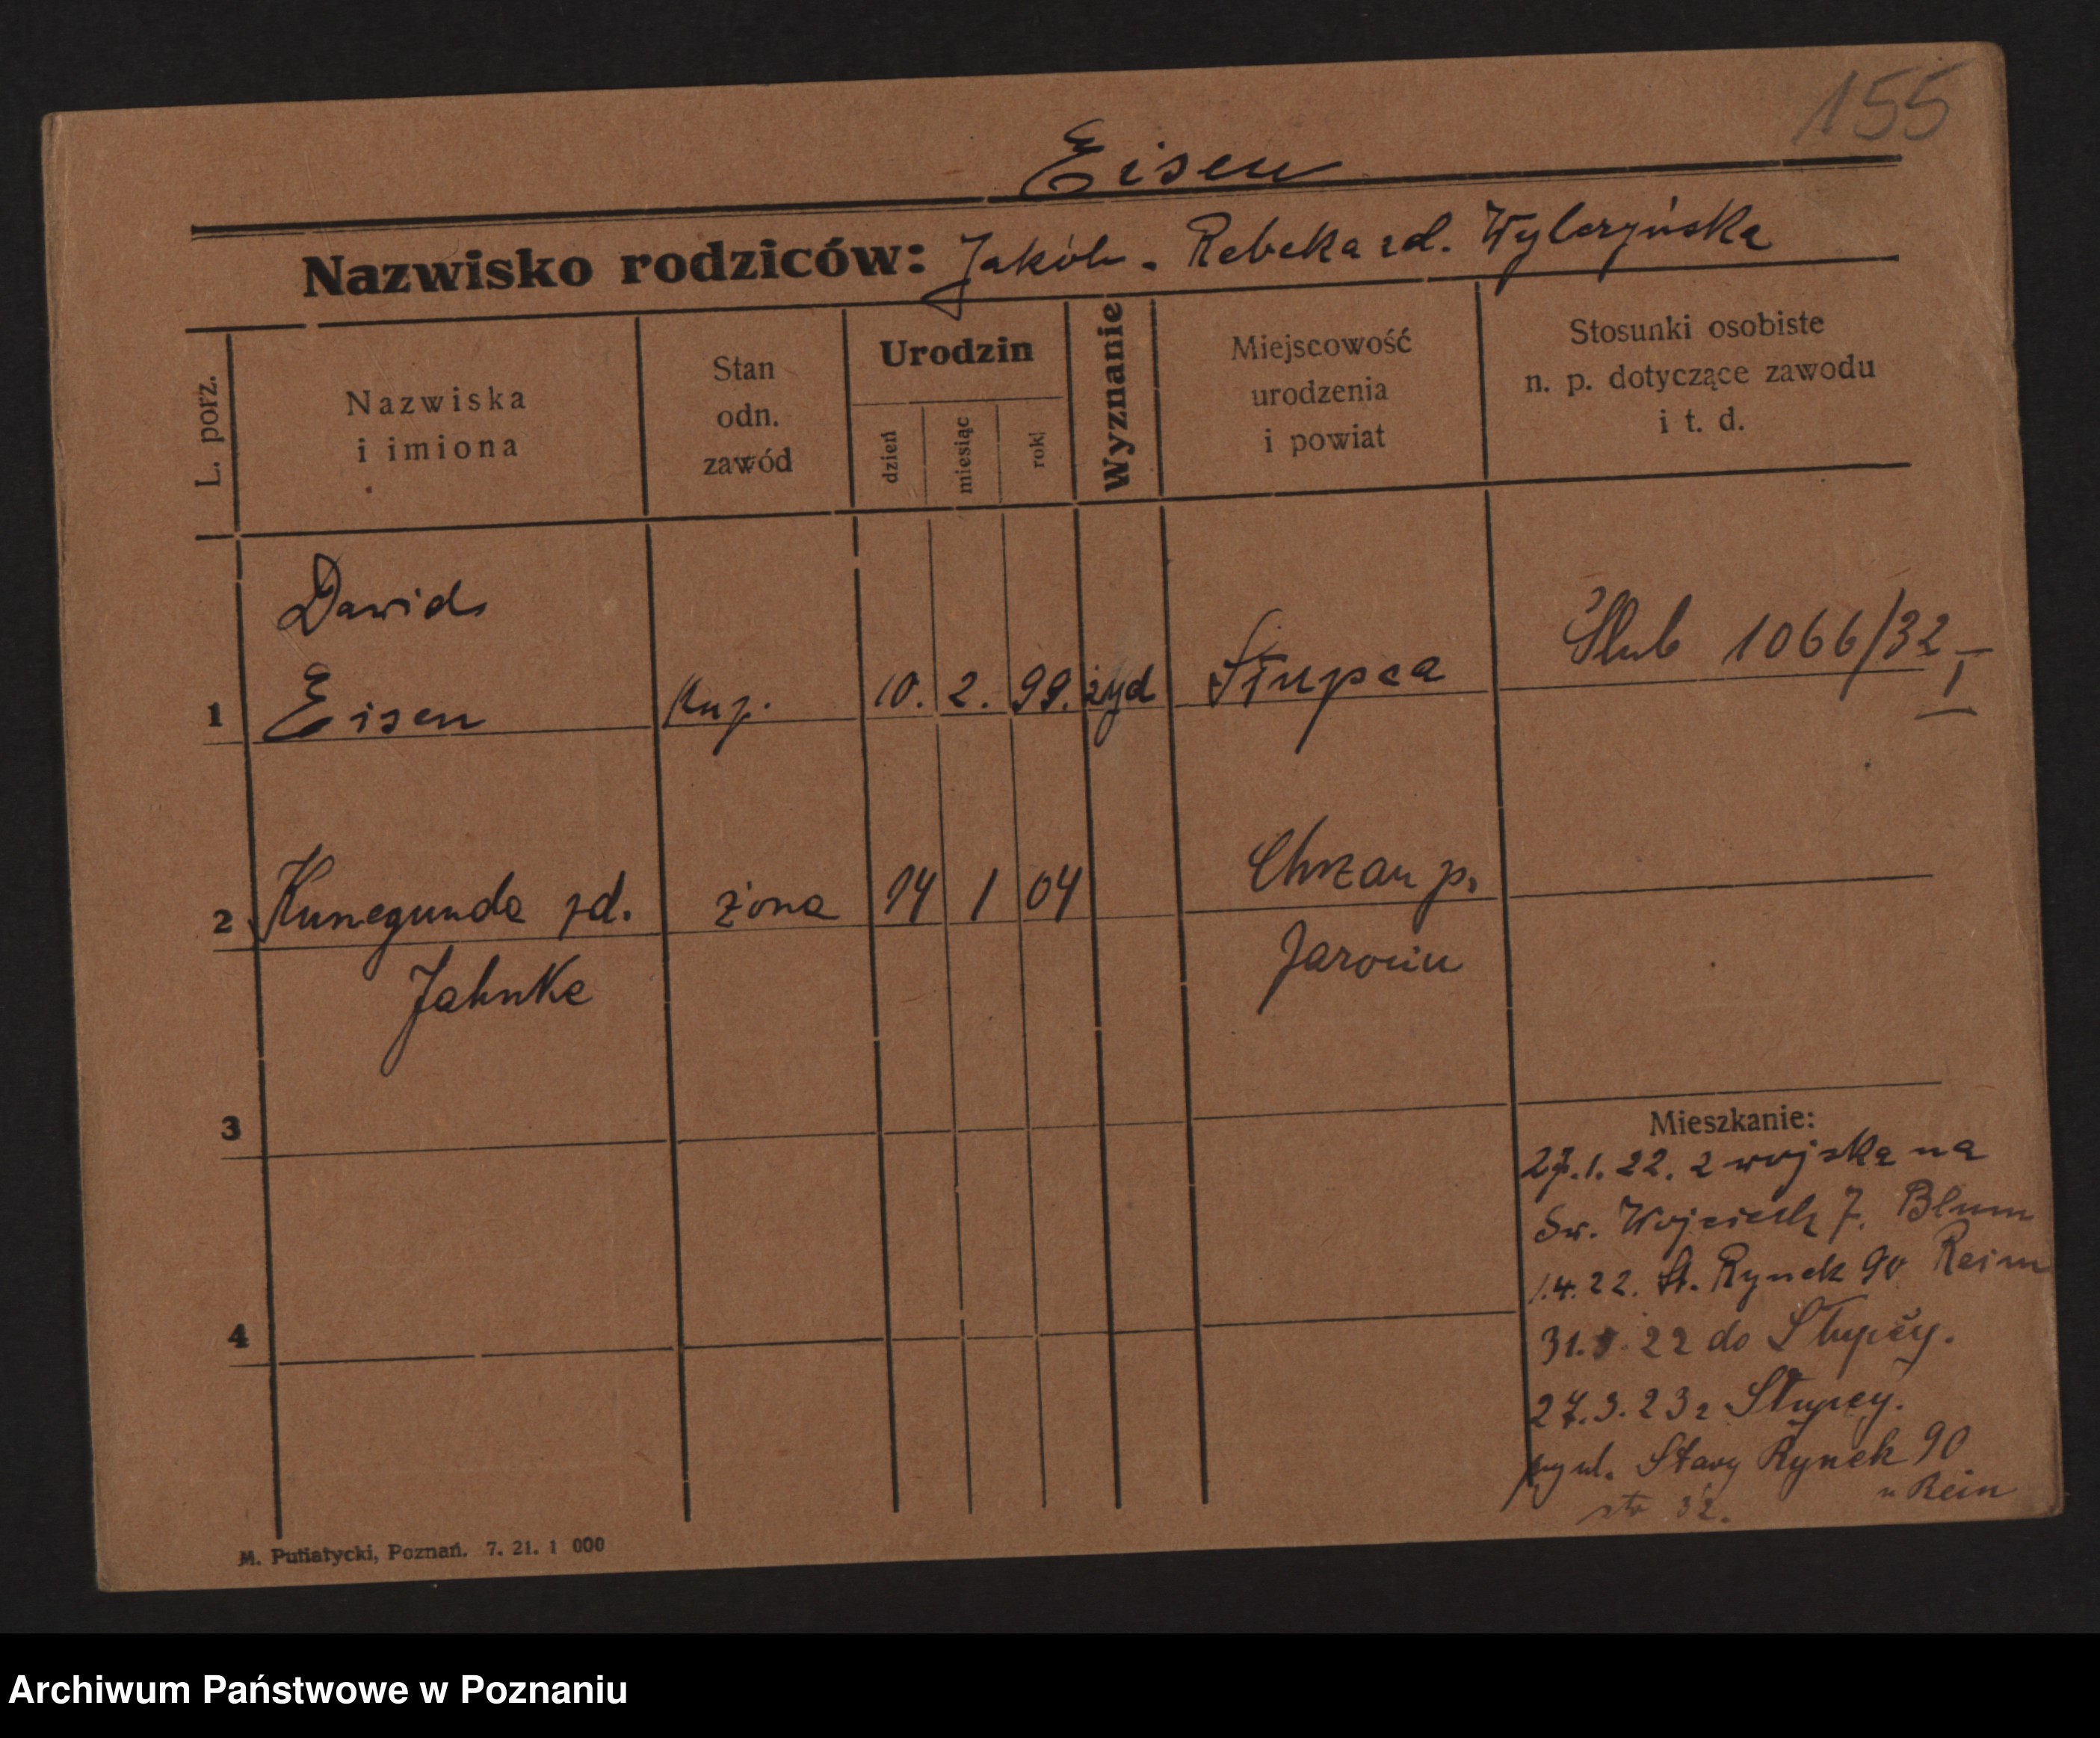 155
Eisen
Nazwisko rodziców: Jakób. Rebeka zd. Wylezyńska
L. porz.
Nazwiska
i imiona
Stan
odn.
zawód
Urodzin
dzień
miesiąc
rok
Wyznanie
Miejscowość
urodzenia
i powiat
Stosunki osobiste
n. p. dotyczące zawodu
i t. d.
Dawid
1 Eisen Kup. 10. 2. 99. żyd Słupca Ślub 1066/32 I
2 Kunegunda zd. żona 14 1 04 Chrzan p.
Jahnke Jarocin
3
Mieszkanie:
27.1.22. z wojska na
Św. Wojciech 7. Blum
1.4.22. St. Rynek 90 Reim
31. 22 do Słupcy.
4
27.3.23 z Słupcy.
ul. Stary Rynek 90
u Rein
str 32.
M. Putiatycki, Poznań. 7. 21. 1 000
Archiwum Państwowe w Poznaniu